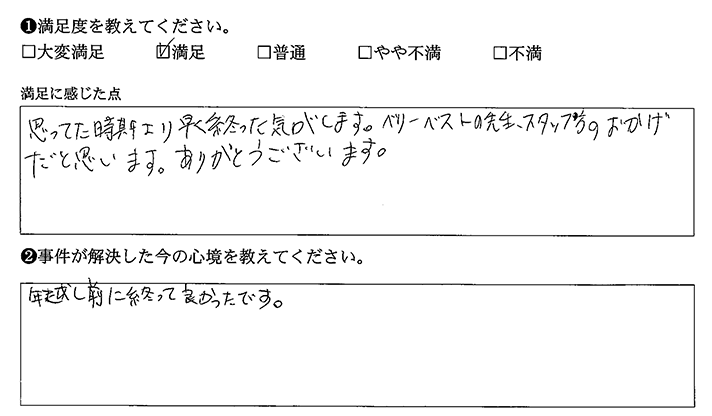 ❶満足度を教えてください。
□大変満足 ☑満足 □普通 □やや不満 □不満
満足に感じた点
思ってた時期より早く終った気がします。ベリーベストの先生、スタッフ等のおかげ
だと思います。ありがとうございます。
❷事件が解決した今の心境を教えてください。
年越し前に終って良かったです。